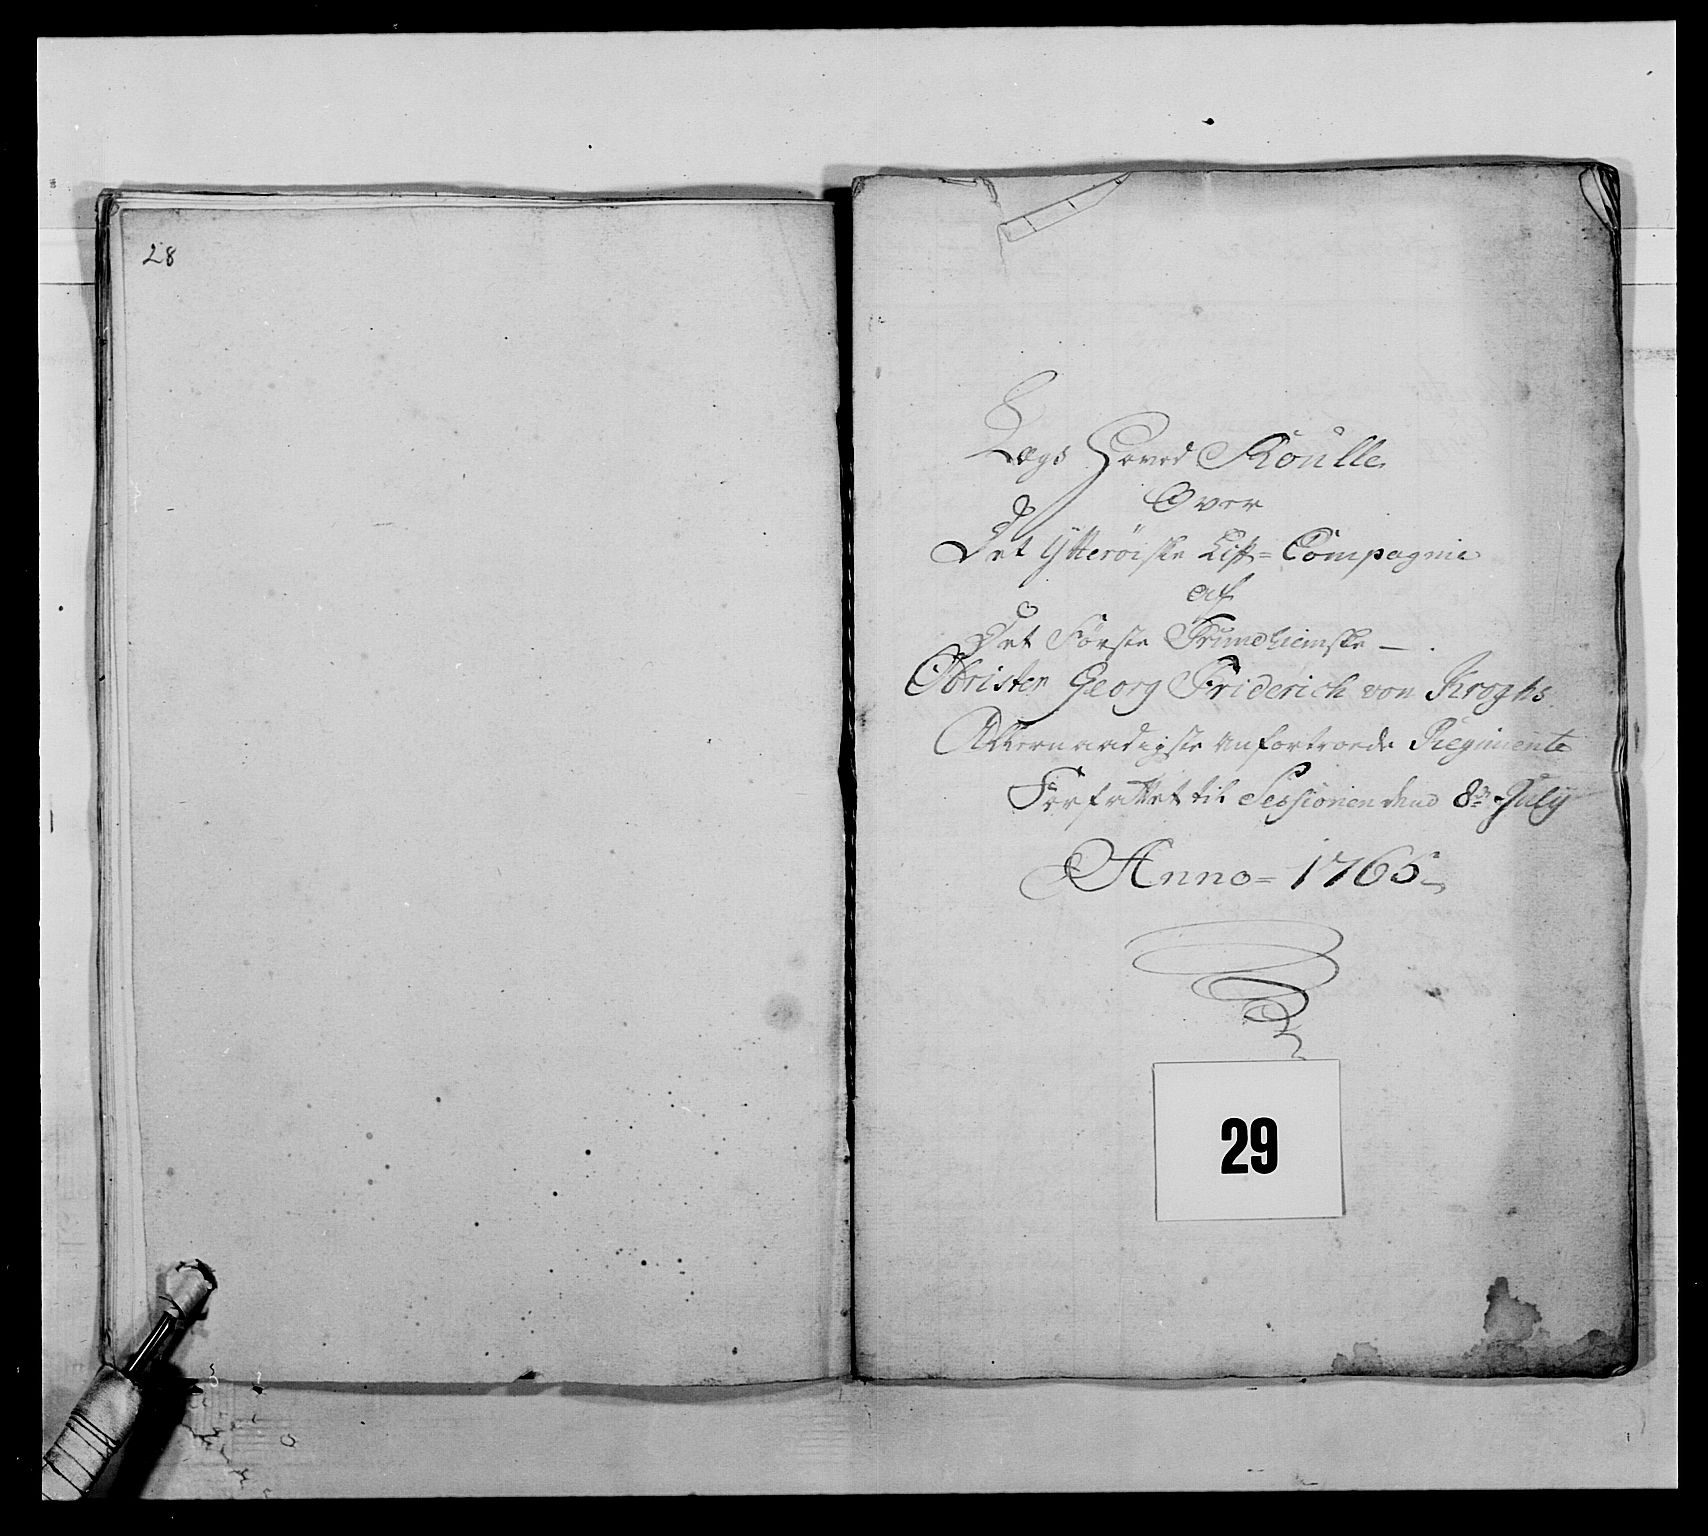 28
Lægs Hoved Roulle
Over
Det Ytterøiske Lif=Compagnie
af
Det Første Trundhiemske —
Obrister Georg Friderich von Kroghs
Allernaadigste anfortroede Regimente
Forfattet til Sessionen dend 8de July
Anno= 1765
29